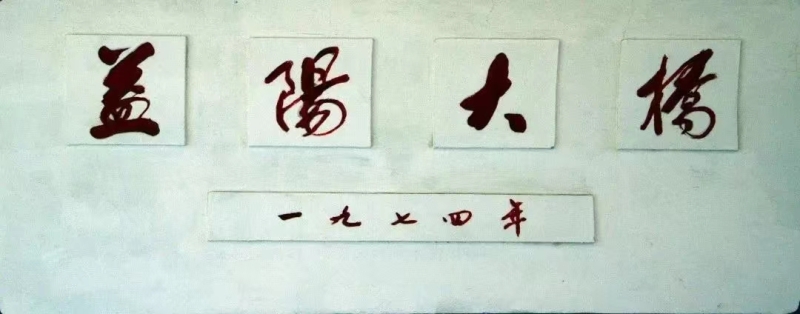 益陽大橋
一九七四年